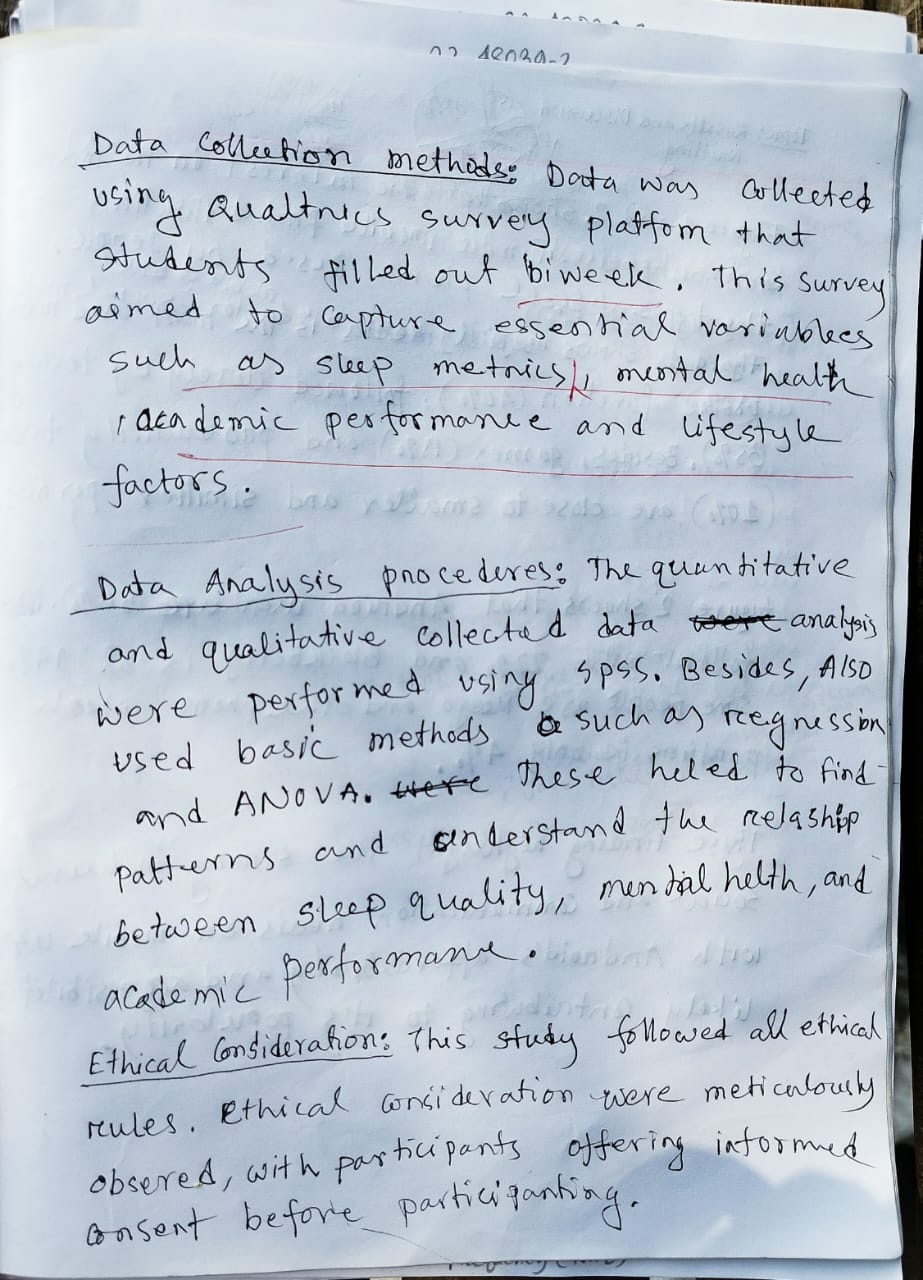 22-48039-2
Data Collection methods: Data was collected
using Qualtrics survey platfom that
students filled out biweek. This survey
aimed to capture essential variablees
such as sleep metrics, mental health
, academic performance and lifestyle
factors.
Data Analysis procederes: The quantitative
and qualitative collected data were analysis
were performed using SPSS. Besides, Also
used basic methods such as regression
and ANOVA. were These heled to find
patterns and understand the relaship
between sleep quality, mental helth, and
academic performance.
Ethical Consideration: This study followed all ethical
rules. Ethical consideration were meticulously
obsered, with participants offering informed
consent before particiganting.